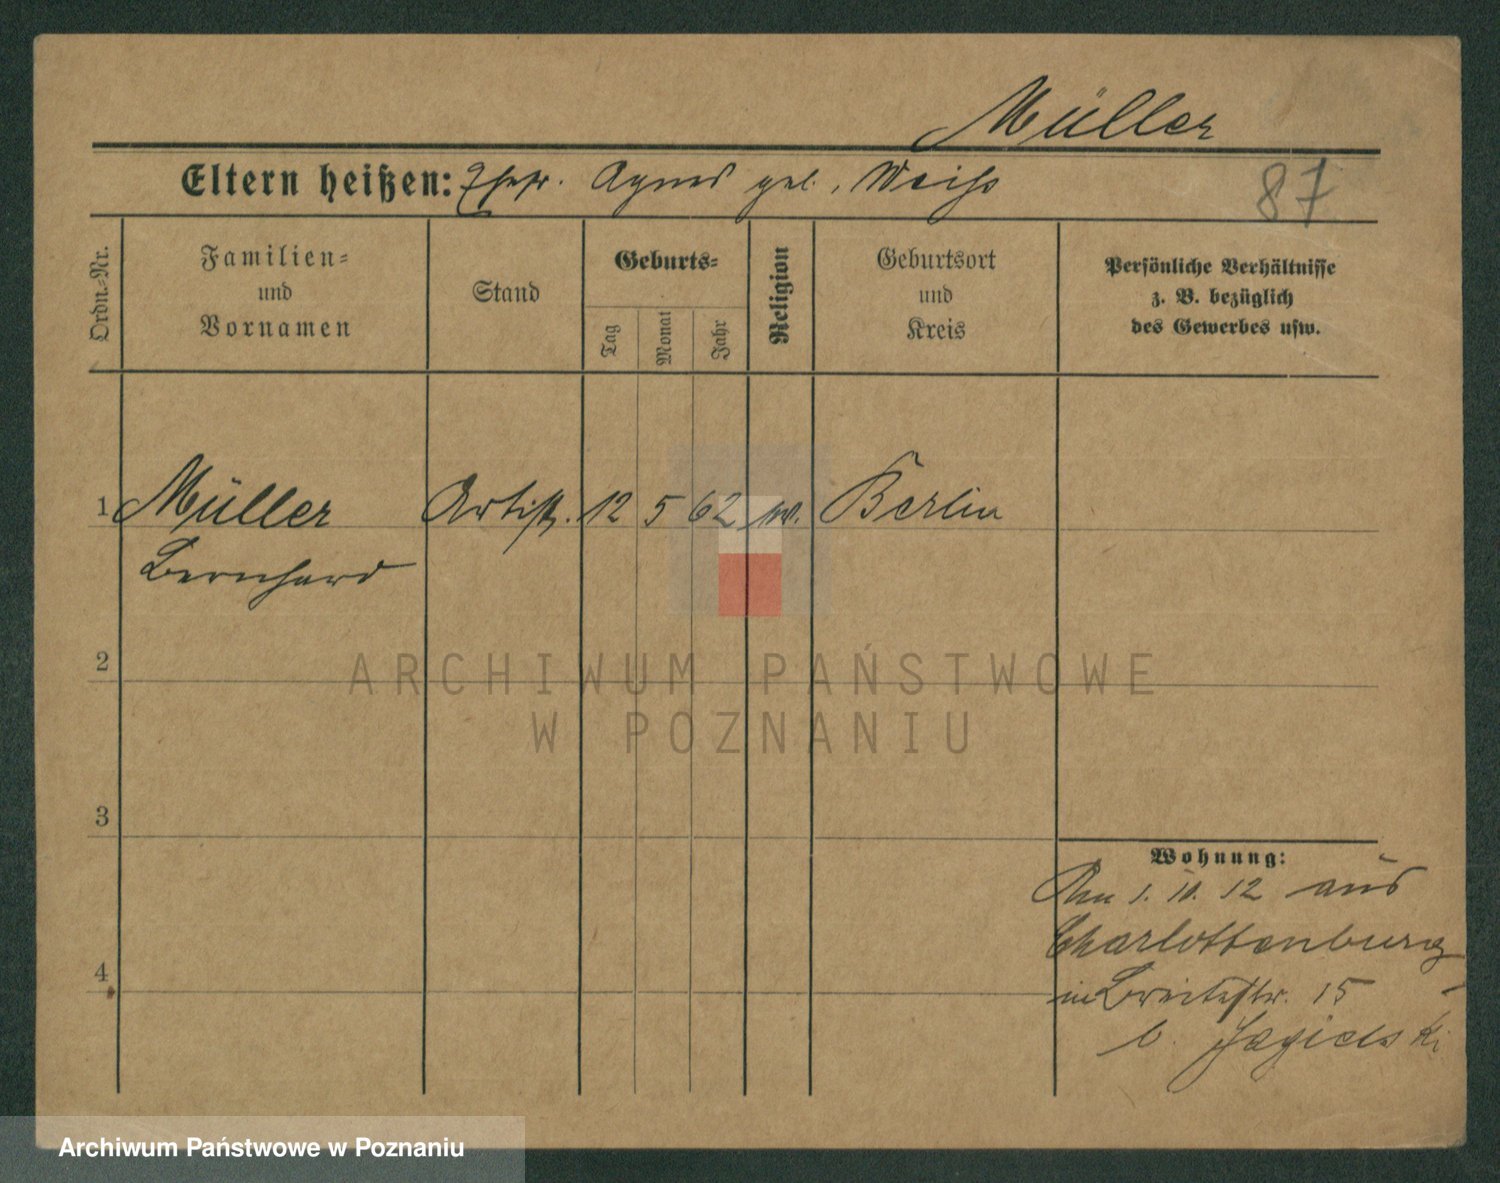 Müller
Eltern heißen: Agnes geb. Weiß
87
Ordn.-Nr.
Familien-
und
Vornamen
Stand
Geburts-
Tag
Monat
Jahr
Religion
Geburtsort
und
Kreis
Persönliche Verhältnisse
z. B. bezüglich
des Gewerbes usw.
1 Müller Artist. 12 5 62 Berlin
Bernhard
2
3
4
Wohnung:
Am 1. 10. 12 aus
Charlottenburg
in Breitestr. 15
b. Jagielski
ARCHIWUM PAŃSTWOWE
W POZNANIU
Archiwum Państwowe w Poznaniu